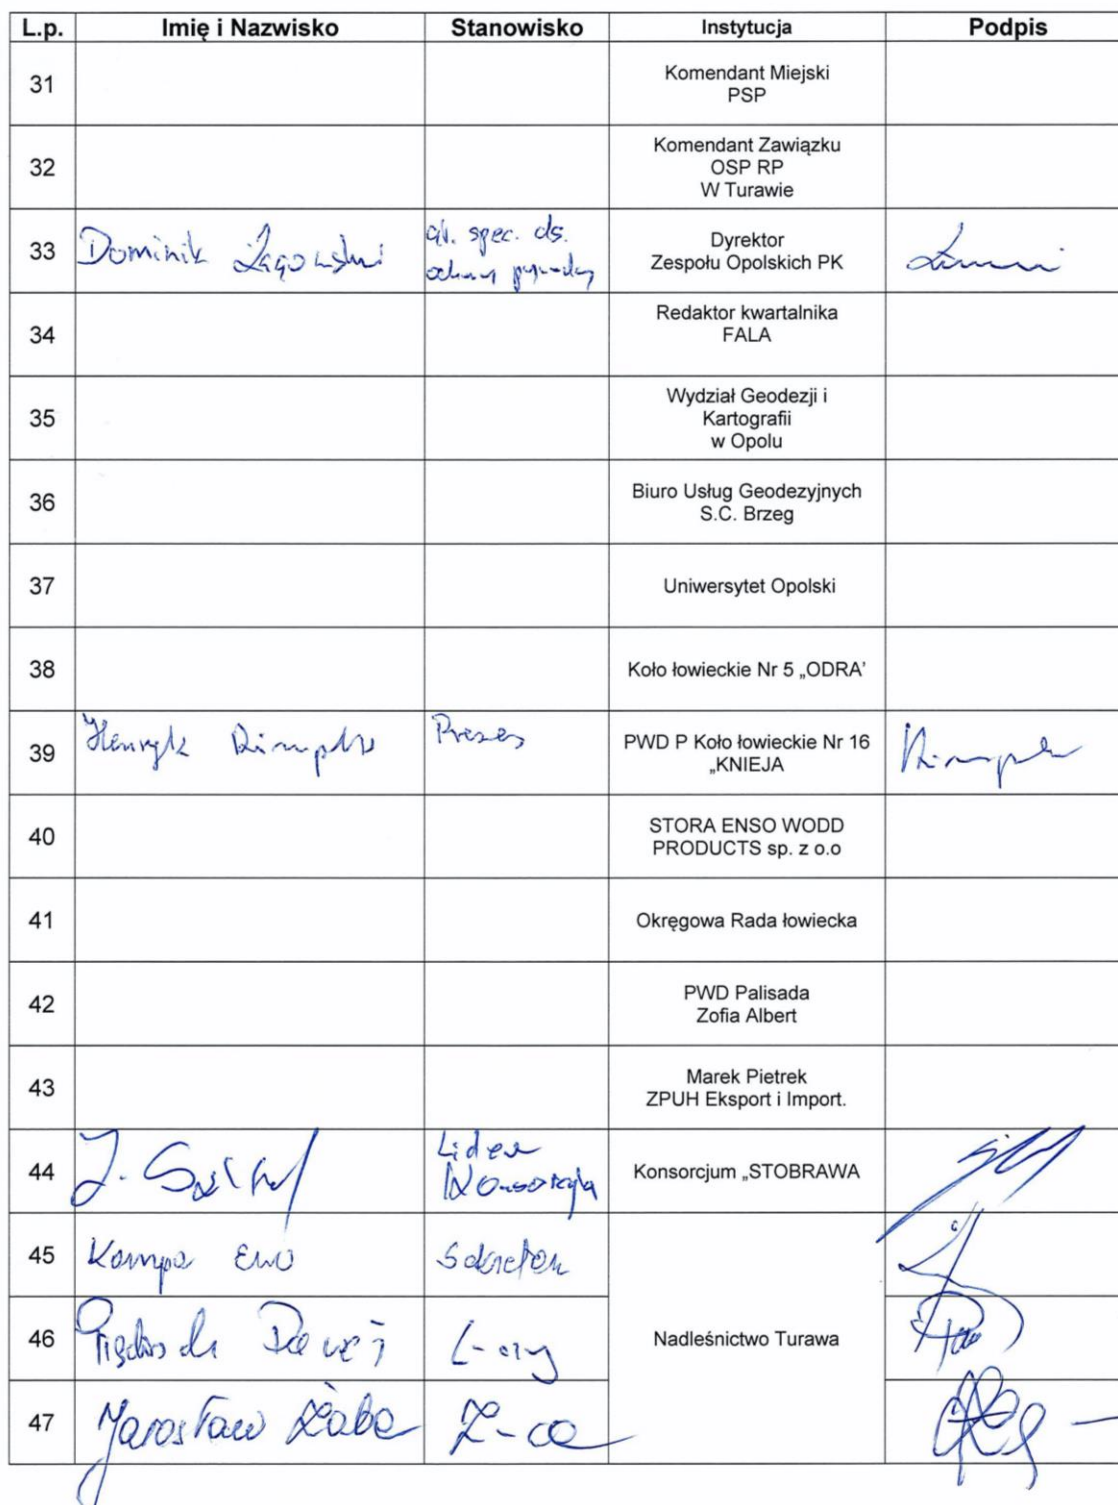 L.p. Imię i Nazwisko Stanowisko Instytucja Podpis
31 Komendant Miejski
PSP
32 Komendant Zawiązku
OSP RP
W Turawie
33 Dominik gł. spec. ds. Dyrektor
Zespołu Opolskich PK
34 Redaktor kwartalnika
FALA
35 Wydział Geodezji i
Kartografii
w Opolu
36 Biuro Usług Geodezyjnych
S.C. Brzeg
37 Uniwersytet Opolski
38 Koło łowieckie Nr 5 „ODRA'
39 Henryk Prezes PWD P Koło łowieckie Nr 16
„KNIEJA
40 STORA ENSO WODD
PRODUCTS sp. z o.o
41 Okręgowa Rada łowiecka
42 PWD Palisada
Zofia Albert
43 Marek Pietrek
ZPUH Eksport i Import.
44 J. Lider Konsorcjum „STOBRAWA
45 Kampa Ewa
46 Nadleśnictwo Turawa
47 Jarosław Żaba Z-ca